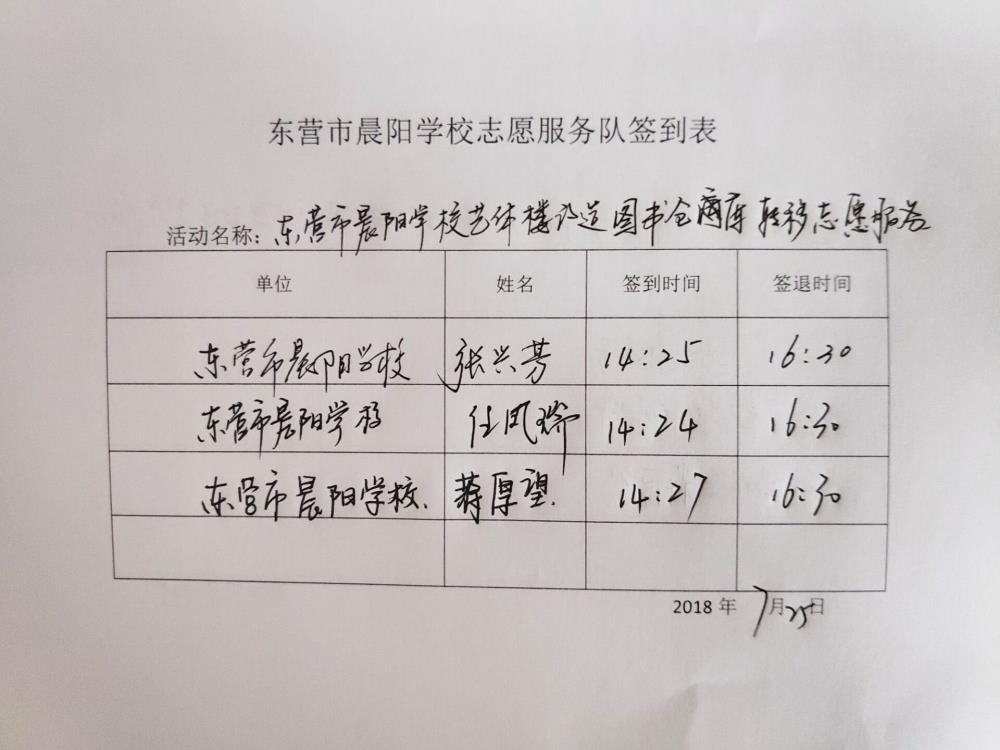 东营市晨阳学校志愿服务队签到表
活动名称：东营市晨阳学校艺体楼改造图书仓库转移志愿服务
单位 姓名 签到时间 签退时间
东营市晨阳学校 张兴芳 14:25 16:30
东营市晨阳学校 任凤瑞 14:24 16:30
东营市晨阳学校. 蒋厚望. 14:27 16:30
2018 年 7月25日